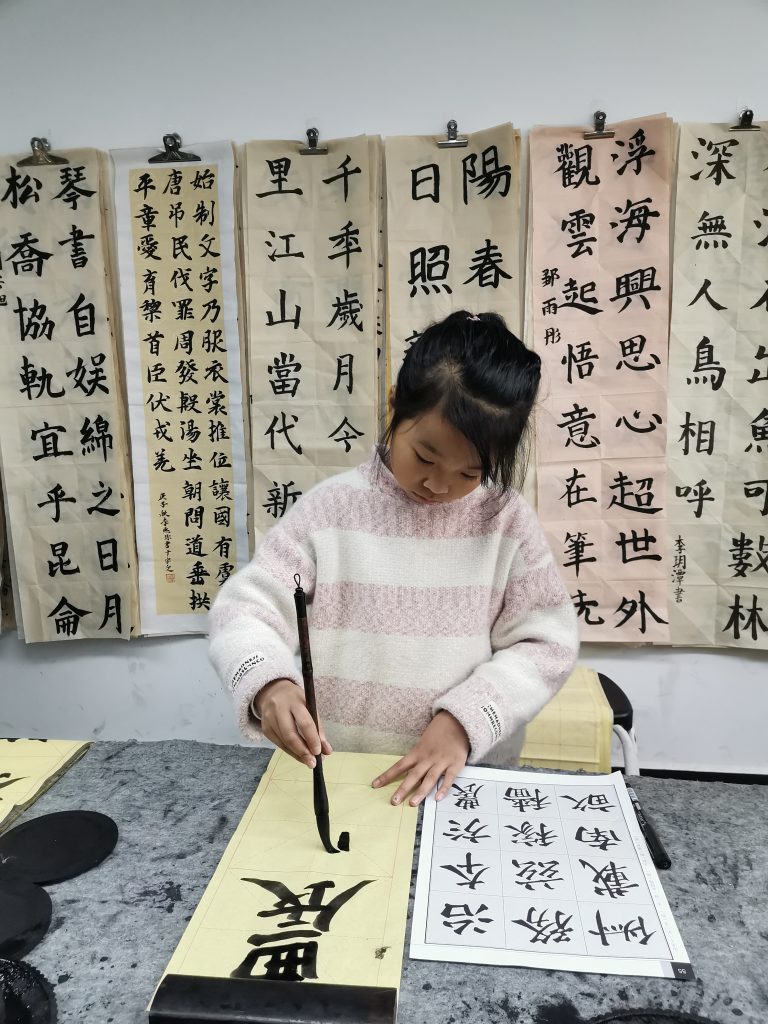 琴書自娱綿之日月
松喬協軌宜乎昆侖
始制文字乃服衣裳推位讓國有虞
唐吊民伐罪周發殷湯坐朝問道垂拱
平章愛育黎首臣伏戎羌
千秊歲月今
里江山當代新
陽春
日照
浮海興思心超世外
觀雲起悟意在筆先
鄒雨彤
出魚可數林
深無人鳥相呼
李玥潭書
農
治本於農
務茲稼穡
俶載南畝
55